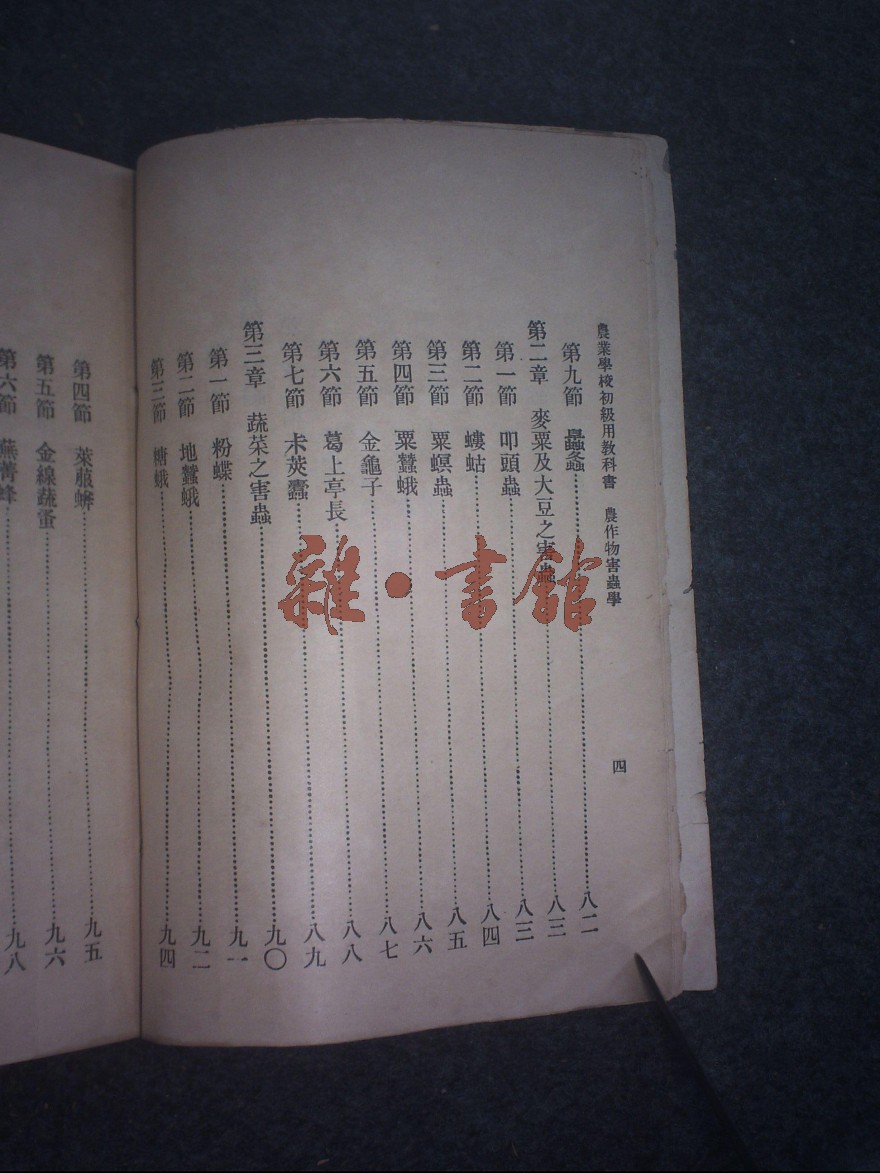 農業學校初級用教科書 農作物害蟲學 四
第九節 蟲螽 八二
第二章 麥粟及大豆之害蟲 八三
第一節 叩頭蟲 八三
第二節 螻蛄 八四
第三節 粟螟蟲 八五
第四節 粟蠶蛾 八六
第五節 金龜子 八七
第六節 葛上亭長 八八
第七節 未莢蠹 八九
第三章 蔬菜之害蟲 九〇
第一節 粉蝶 九一
第二節 地蠶蛾 九二
第三節 糖蛾 九四
第四節 萊菔蜯 九五
第五節 金線蔬蚤 九六
第六節 蕪菁蜂 九八
雜·書館